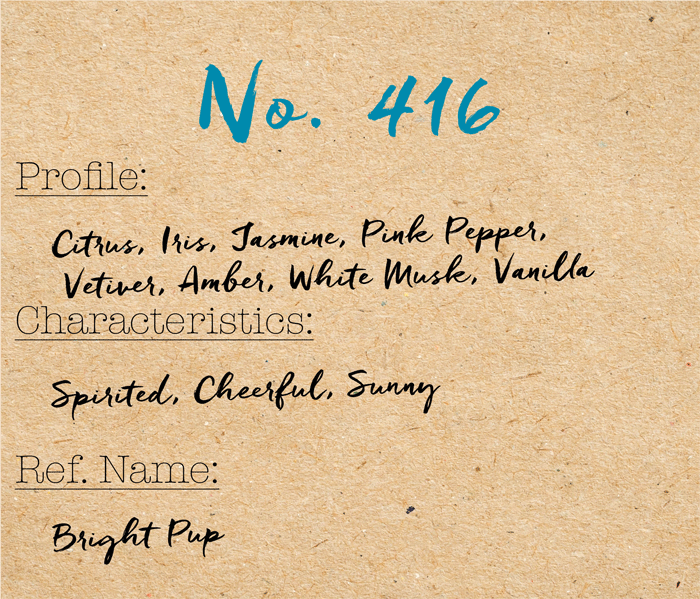 No. 416
Profile:
Citrus, Iris, Jasmine, Pink Pepper,
Vetiver, Amber, White Musk, Vanilla
Characteristics:
Spirited, Cheerful, Sunny
Ref. Name:
Bright Pup